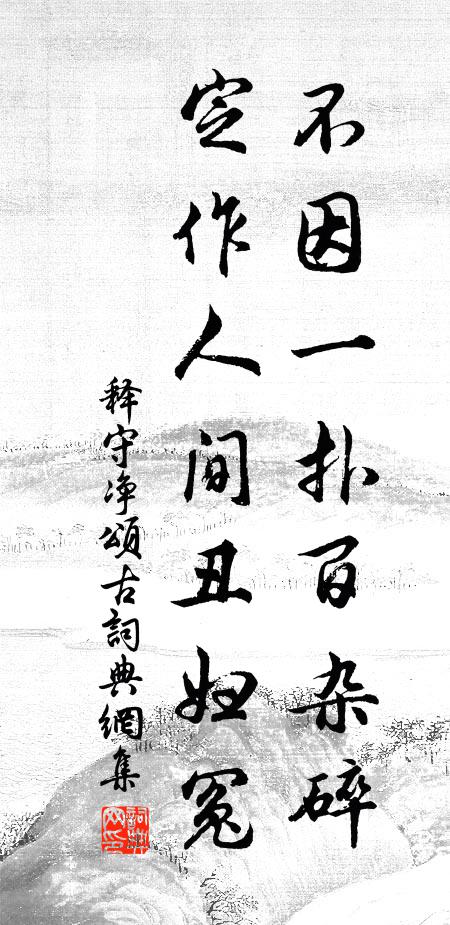 不因一扑百杂碎
定作人间丑妇冤
释守净颂古词典網集